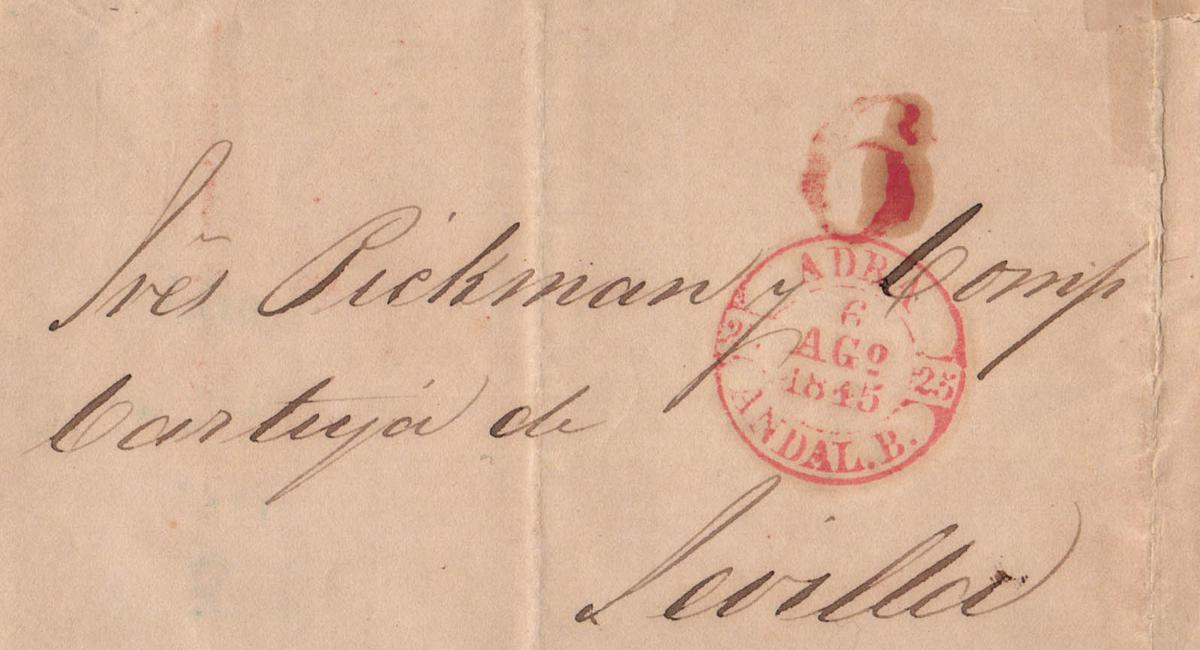 6
Srẽs Pickman y Comp
Cartuja de
Sevilla
ADRA
6
AGº
1845
25
ANDAL. B.